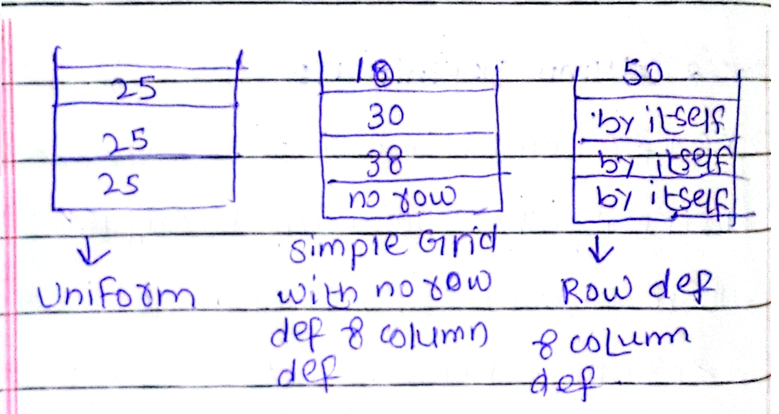 25
25
25
↓
Uniform
10
30
38
no row
simple Grid
with no row
def & column
def
50
by itself
by itself
by itself
↓
Row def
& column
def